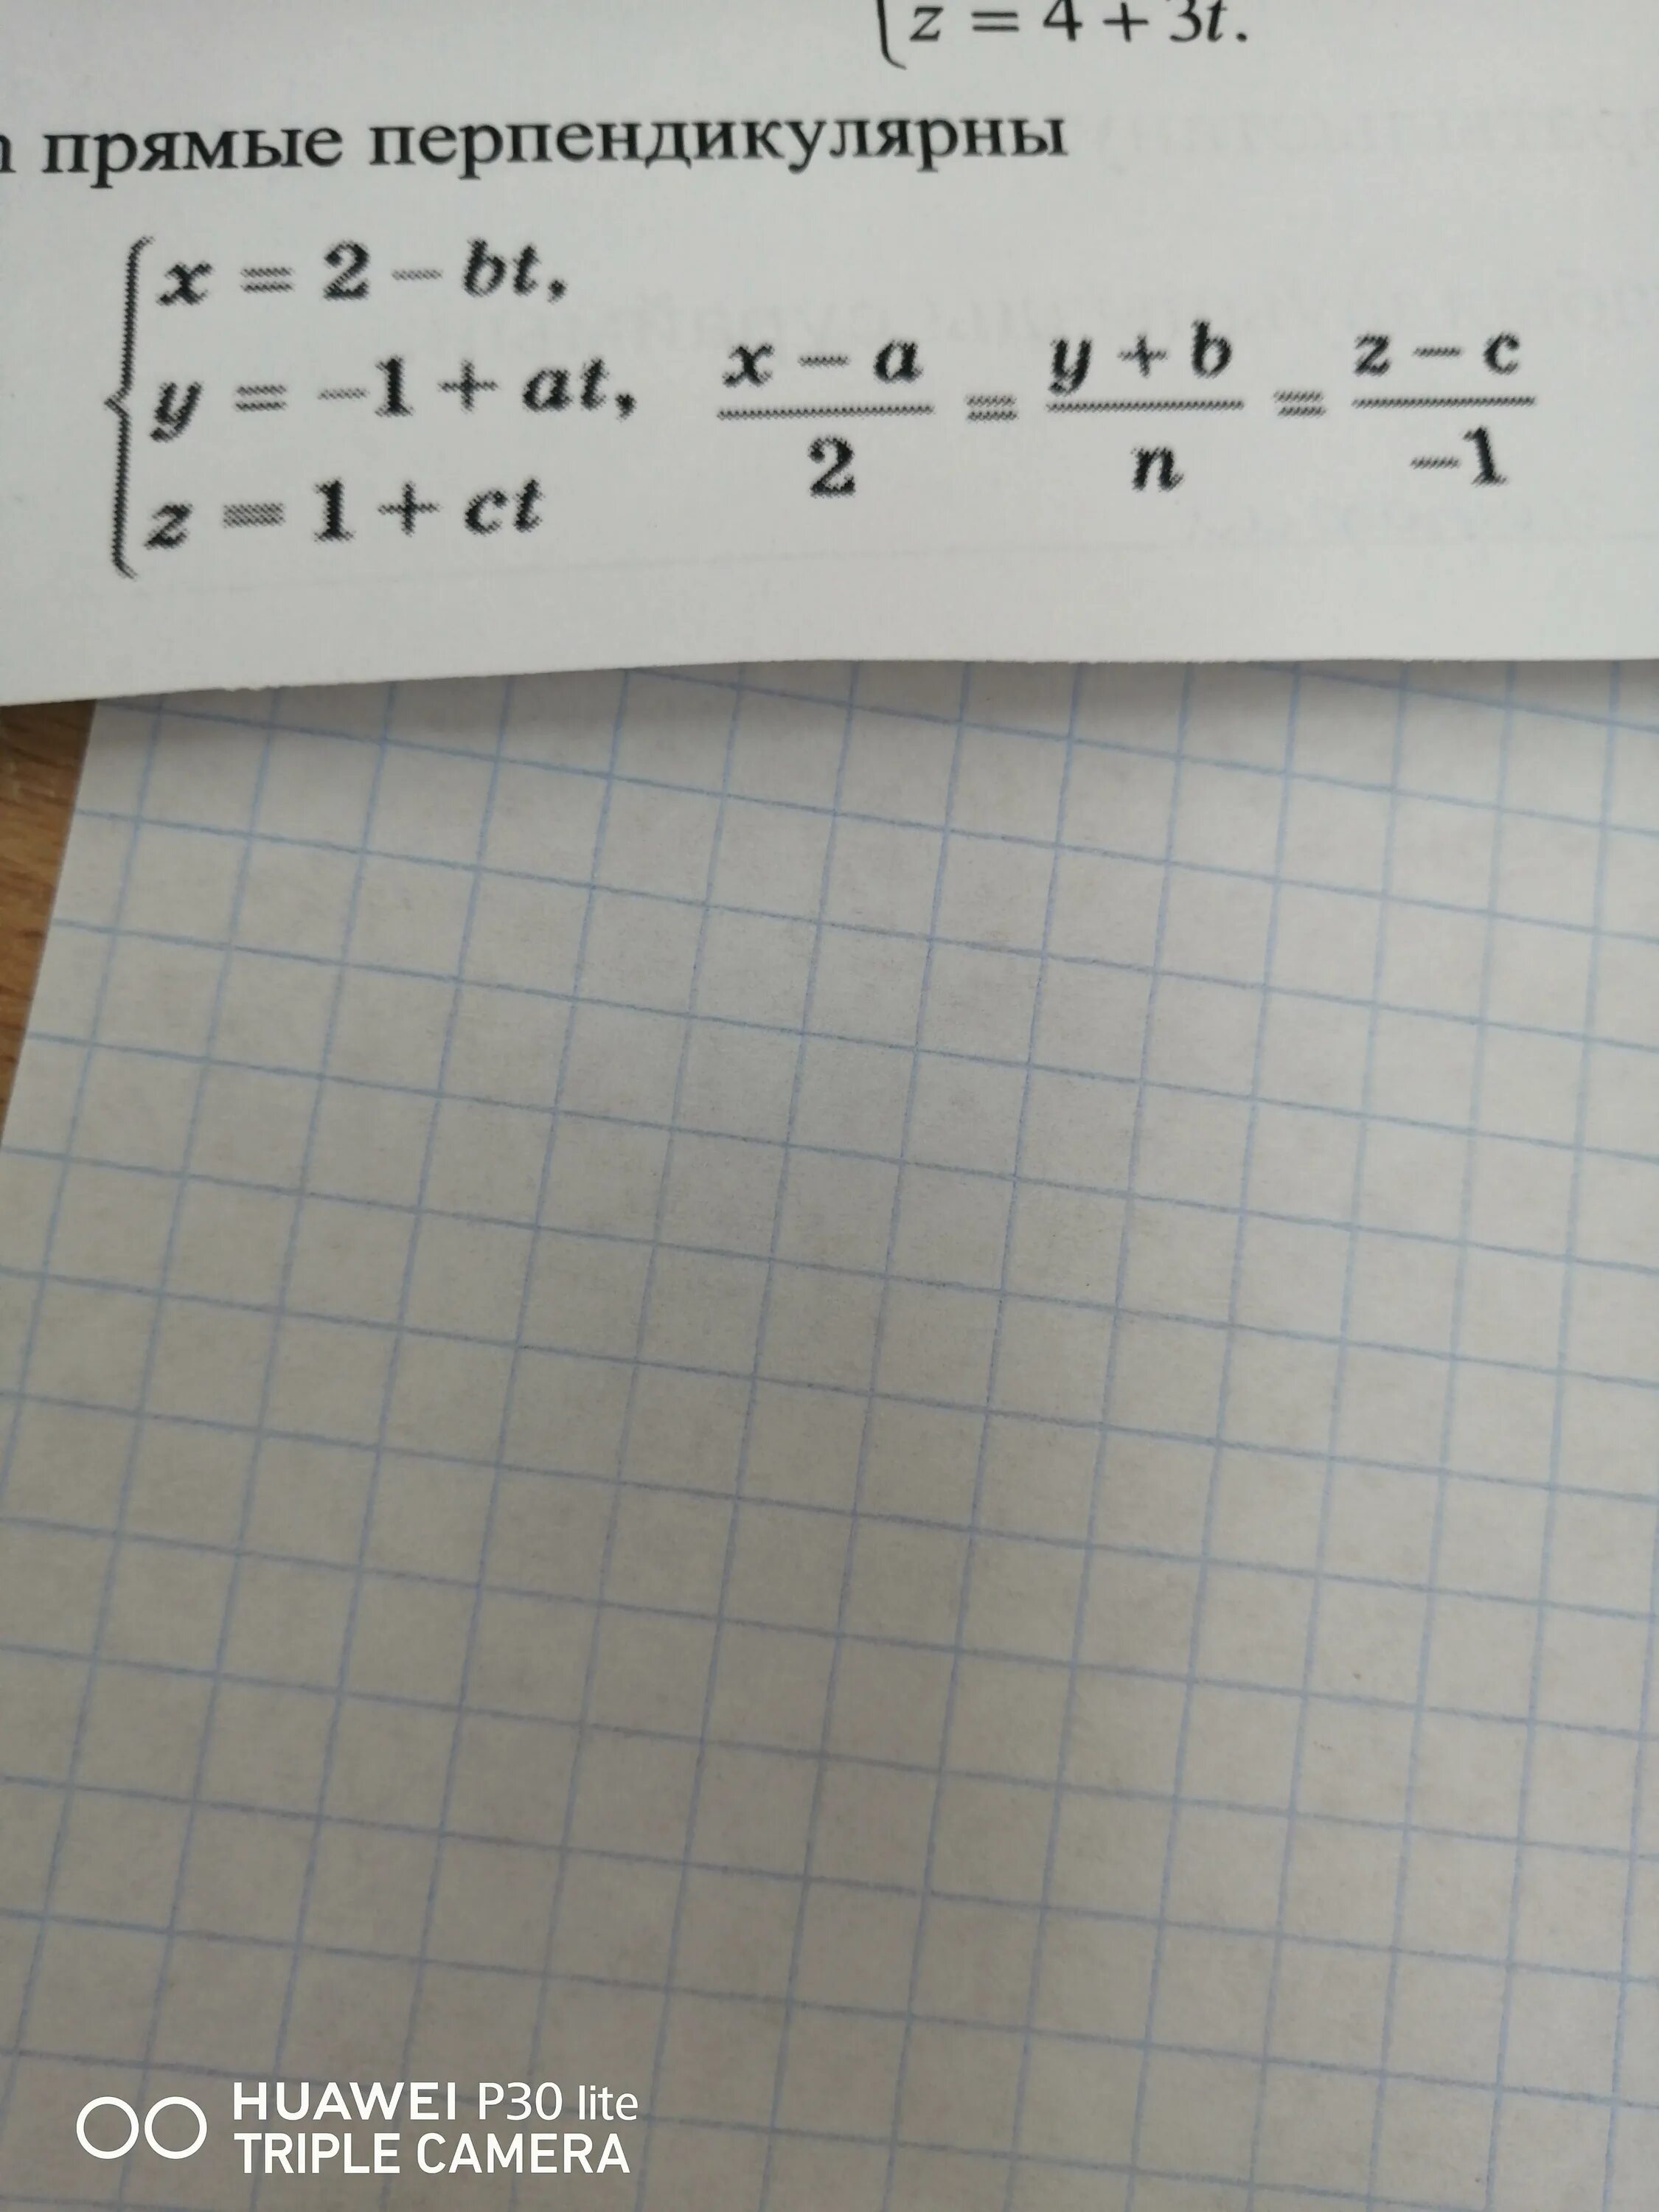 z = 4 + 3t.
прямые перпендикулярны
x = 2 − bt,
y = −1 + at,
z = 1 + ct
x − a / 2 = y + b / n = z − c / −1
HUAWEI P30 lite
TRIPLE CAMERA